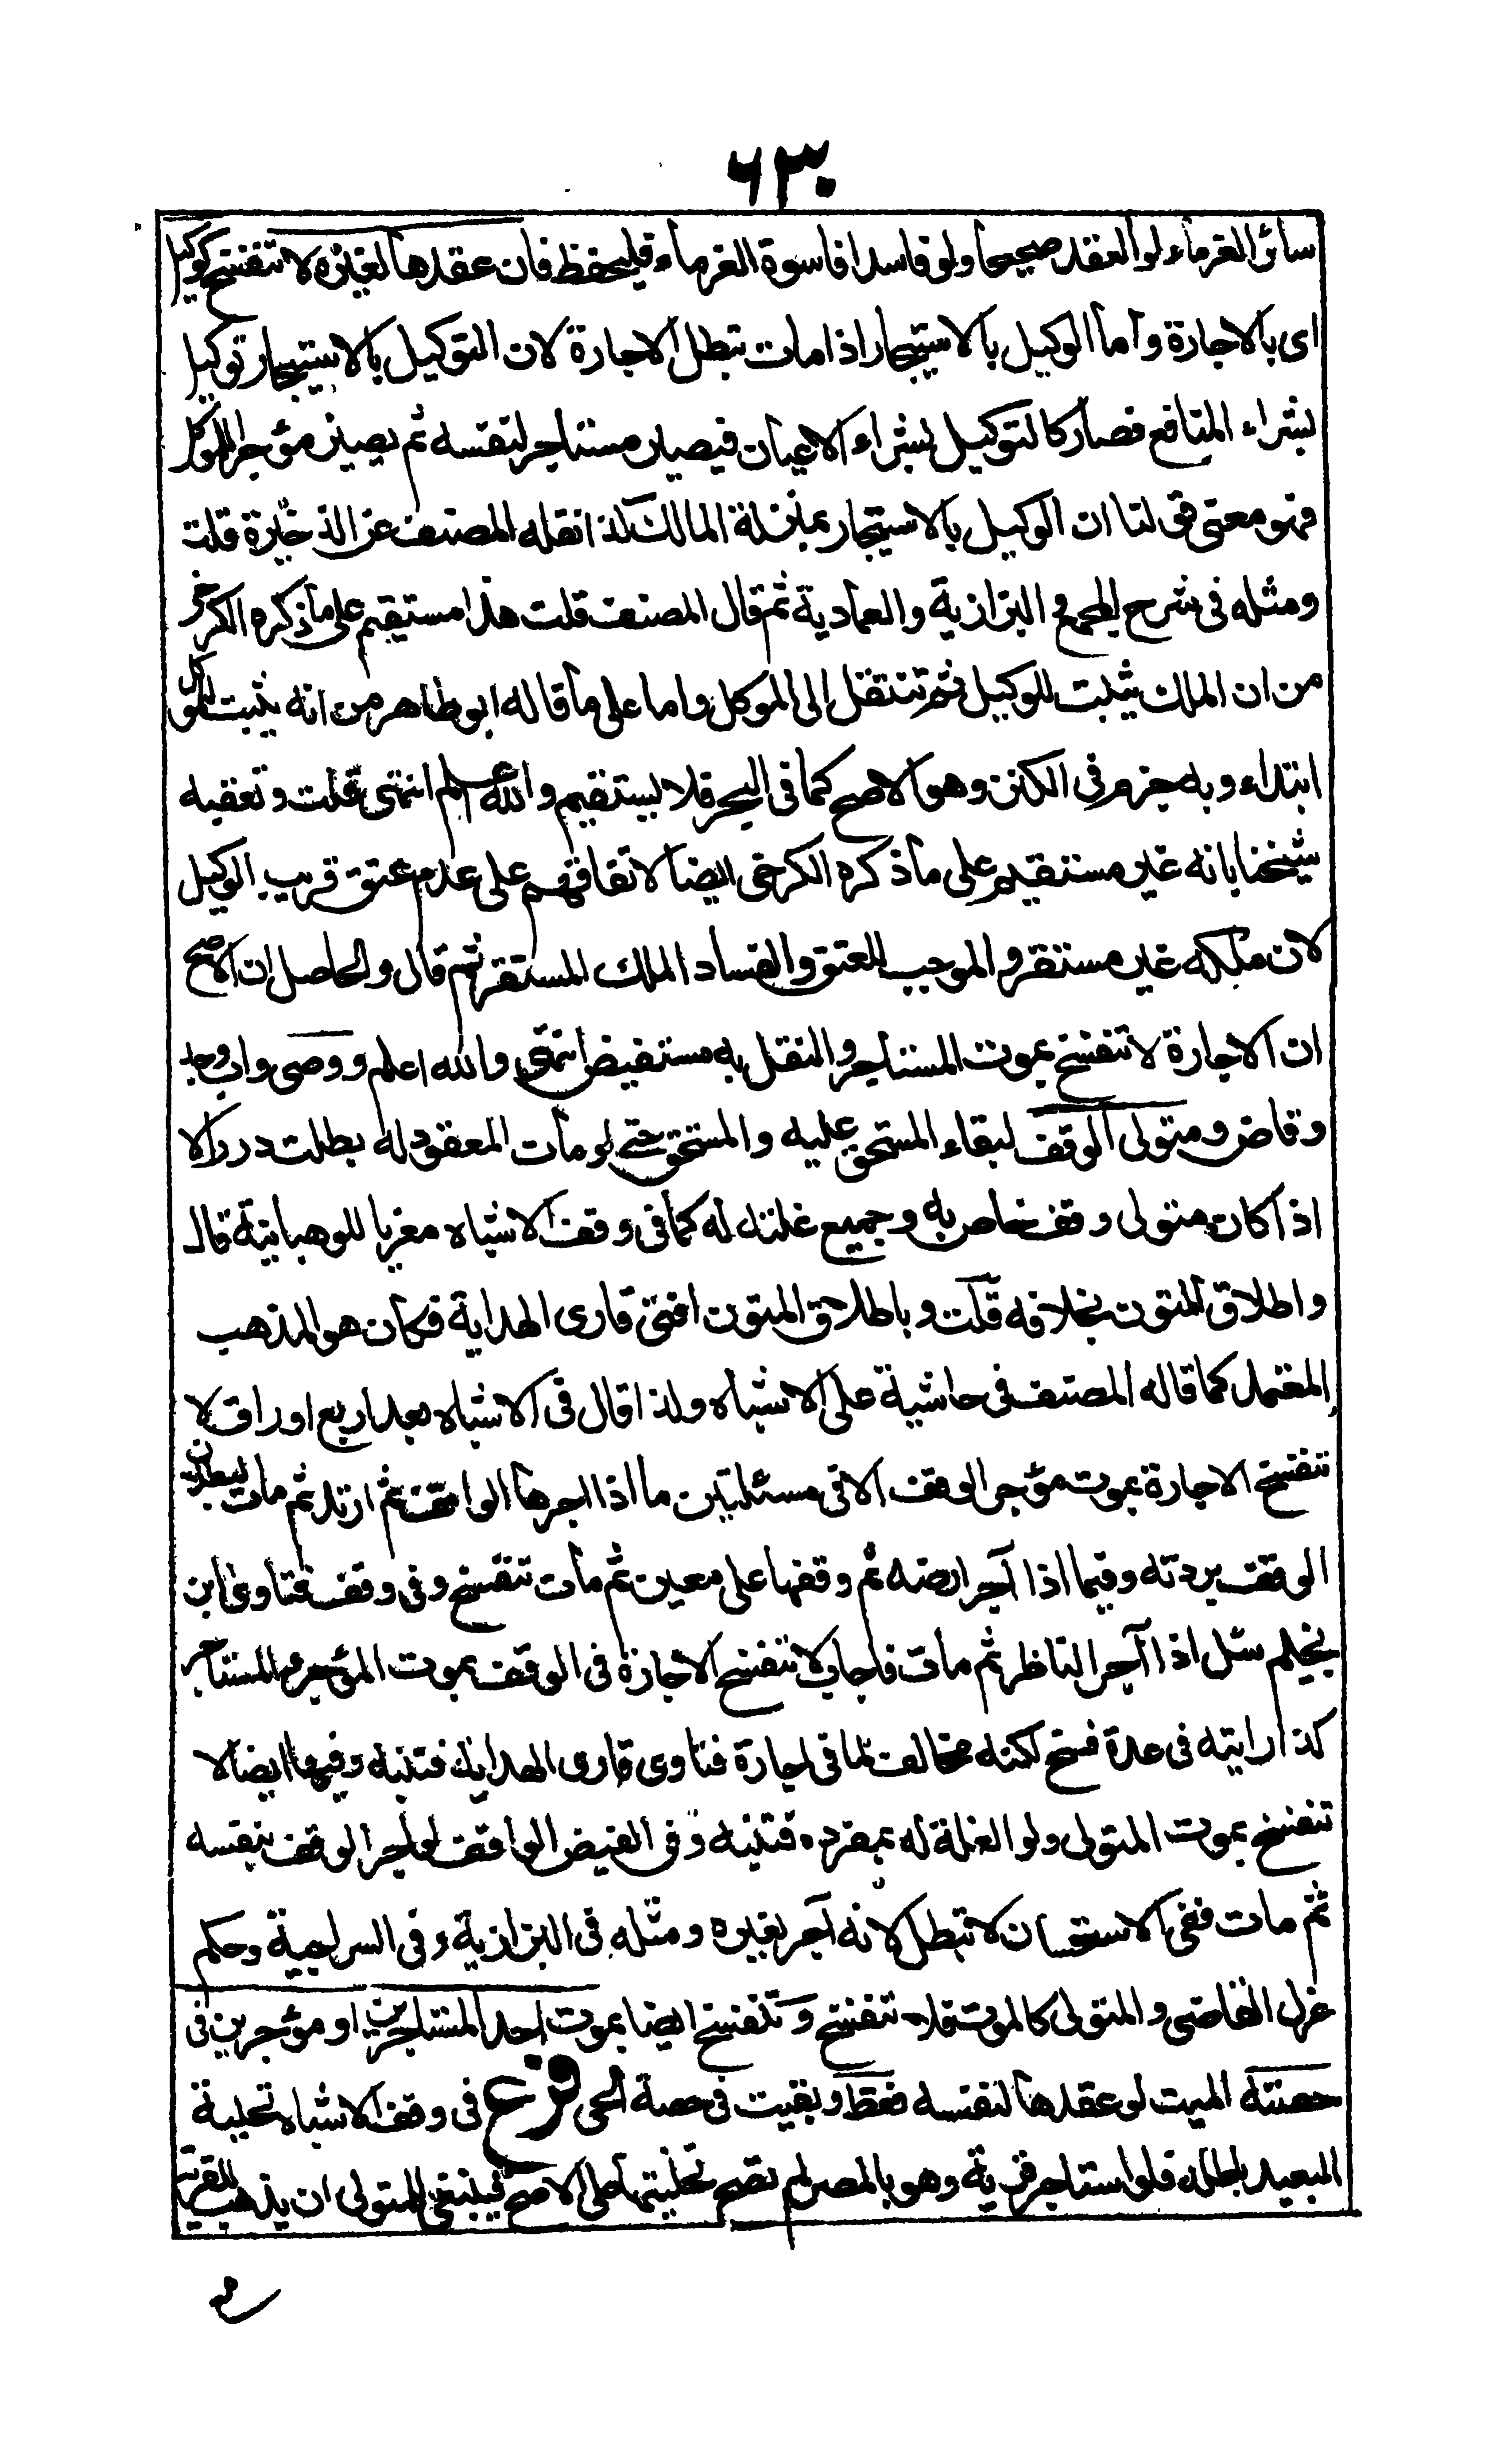 ٦٣٠
سائر الغرماء لو العقد صحيحا ولو فاسدا فاسوة الغرماء فليحفظ فان عقدها لغيره لا تنفسخ كوكيل
اى بالاجارة واما الوكيل بالاستيجار اذا مات تبطل الاجارة لان التوكيل بالاستيجار توكيل
بشراء المنافع فصار كالتوكيل بشراء الاعيان فيصير مستاجر لنفسه ثم يصير مؤجر الموكل
فهو معنى قولنا ان الوكيل بالاستيجار بمنزلة المالك كذا نقله المصنف عن الذخيرة قلت
ومثله فى شرح المجمع والبزازية والعمادية ثم قال المصنف قلت هذا مستقيم على ما ذكره الكرخى
من ان الملك يثبت للوكيل ثم تنتقل الى الموكل واما على ما قاله ابو طاهر من انه يثبت للموكل
ابتداء وبه جزم فى الكنز وهو الاصح كما فى البحر فلا يستقيم والله اعلم انتهى قلت وتعقبه
شيخنا بانه غير مستقيم على ما ذكره الكرخى ايضا لاتفاقهم على عدم عتق قريب الوكيل
لان ملكه غير مستقر والموجب للعتق والفساد الملك المستقر ثم قال والحاصل ان الاصح
ان الاجارة لا تنفسخ بموت المستاجر والنقل به مستفيض انتهى والله اعلم ووصى واب وجد
وقاض ومتولى الوقف لبقاء المستحق عليه والمستحق حتى لو مات المعقود له بطلت درر الا
اذا كان متولى وقف خاص به وجميع غلته له كما فى وقف الاشباه معزيا للوهبانية قال
واطلاق المتون بخلافه قلت وباطلاق المتون افتى قارى الهداية فكان هو المذهب
المعتمد كما قاله المصنف فى حاشية على الاشباه ولذا قال فى الاشباه بعد اربع اوراق لا
تنفسخ الاجارة بموت مؤجر الوقف الا فى مسئلتين ما اذا اجرها الواقف ثم ارتد ثم مات لبطلان
الوقف بردته وفيما اذا آجر ارضه ثم وقفها على معين ثم مات تنفسخ وفى وقف فتاوى ابن
نجيم سئل اذا آجر الناظر ثم مات فاجاب لا تنفسخ الاجازة فى الوقف بموت المؤجر والمستاجر
كذا رايته فى عدة نسخ لكنه مخالف لما فى اجارة فتاوى قارى الهداية فتنبه وفيها ايضا لا
تنفسخ بموت المتولى ولو الغلة له بمفرده فتنبه وفى الفيض الواقف لو اجر الوقف بنفسه
ثم مات ففى الاستحسان لا تبطل لانه آجر لغيره ومثله فى البزازية وفى السراجية وحكم
عزل القاضى والمتولى كالموت فلا تنفسخ وتنفسخ ايضا بموت احد المستاجرين او مؤجرين فى
حصته الميت لو عقدها لنفسه فقط وبقيت فى حصة الحى فرع فى وقف الاشباه تخلية
البعيد باطلة فلو استاجر قرية وهو بالمصر لم تصح تخليتها على الاصح فينبغى للمتولى ان يذهب للقرية